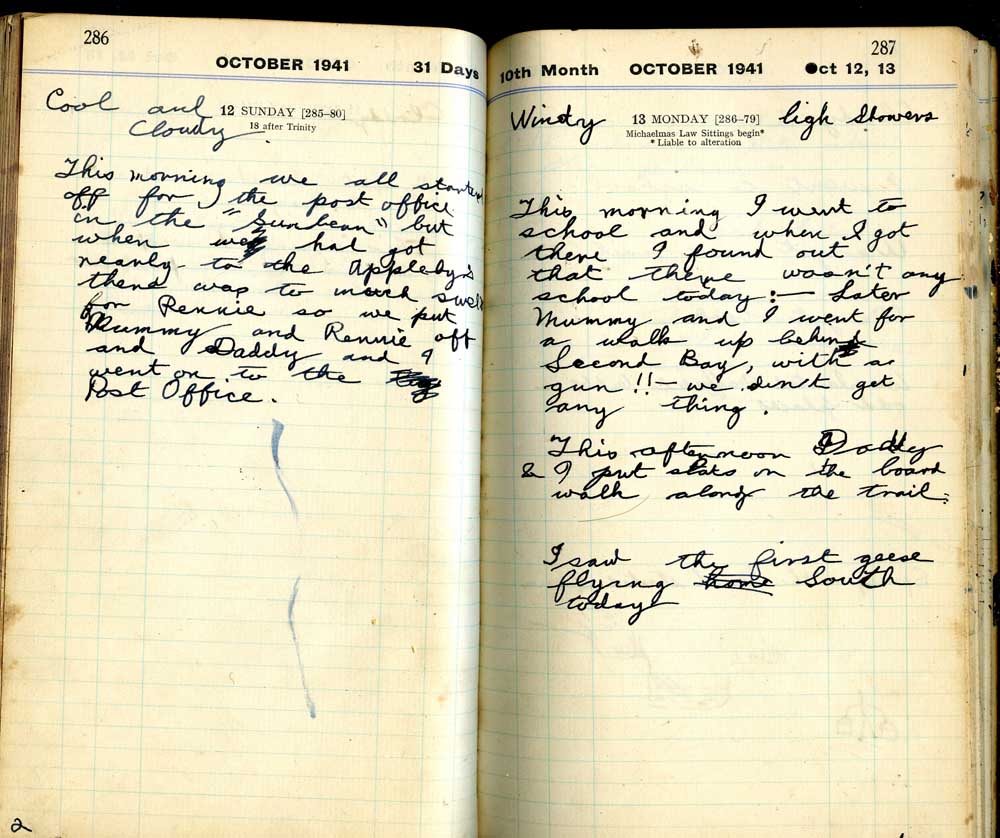 286
OCTOBER 1941 31 Days
Cool and
Cloudy
12 SUNDAY [285–80]
18 after Trinity
This morning we all started
off for the post office
in the "Sunbeam" but
when we had got
nearly to the Appleby's
there was to much swell
for Rennie so we put
Mummy and Rennie off
and Daddy and I
went on to the
Post Office.
2
287
10th Month OCTOBER 1941 Oct 12, 13
Windy
13 MONDAY [286–79]
Michaelmas Law Sittings begin*
* Liable to alteration
ligh Showers
This morning I went to
school and when I got
there I found out
that there wasn't any
school today :— Later
Mummy and I went for
a walk up behind
Second Bay, with a
gun !! — we din't get
any thing.
This afternoon Daddy
& I put slats on the board
walk along the trail.
I saw the first geese
flying home South
today